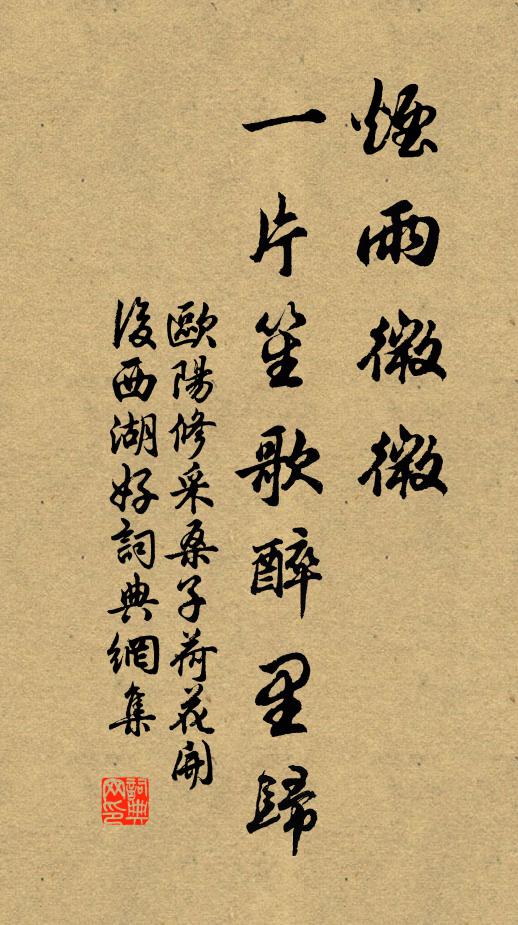 煙雨微微
一片笙歌醉里歸
歐陽修采桑子荷花開
後西湖好詞典網集
詞典
网印